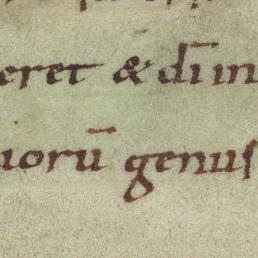 eret & dī in
iorū genus